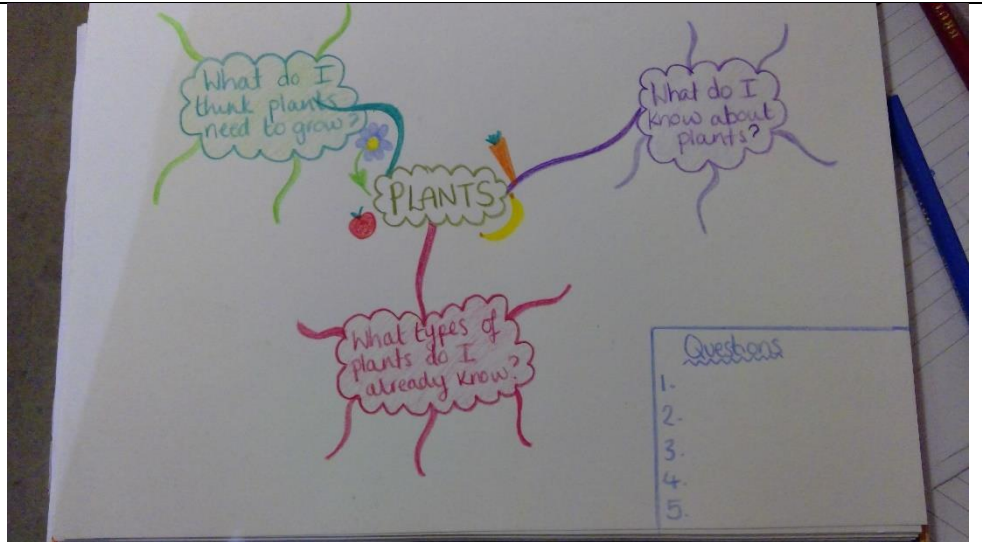 What do I
think plants
need to grow?
What do I
know about
plants?
PLANTS
What types of
plants do I
already know?
Questions
1.
2.
3.
4.
5.